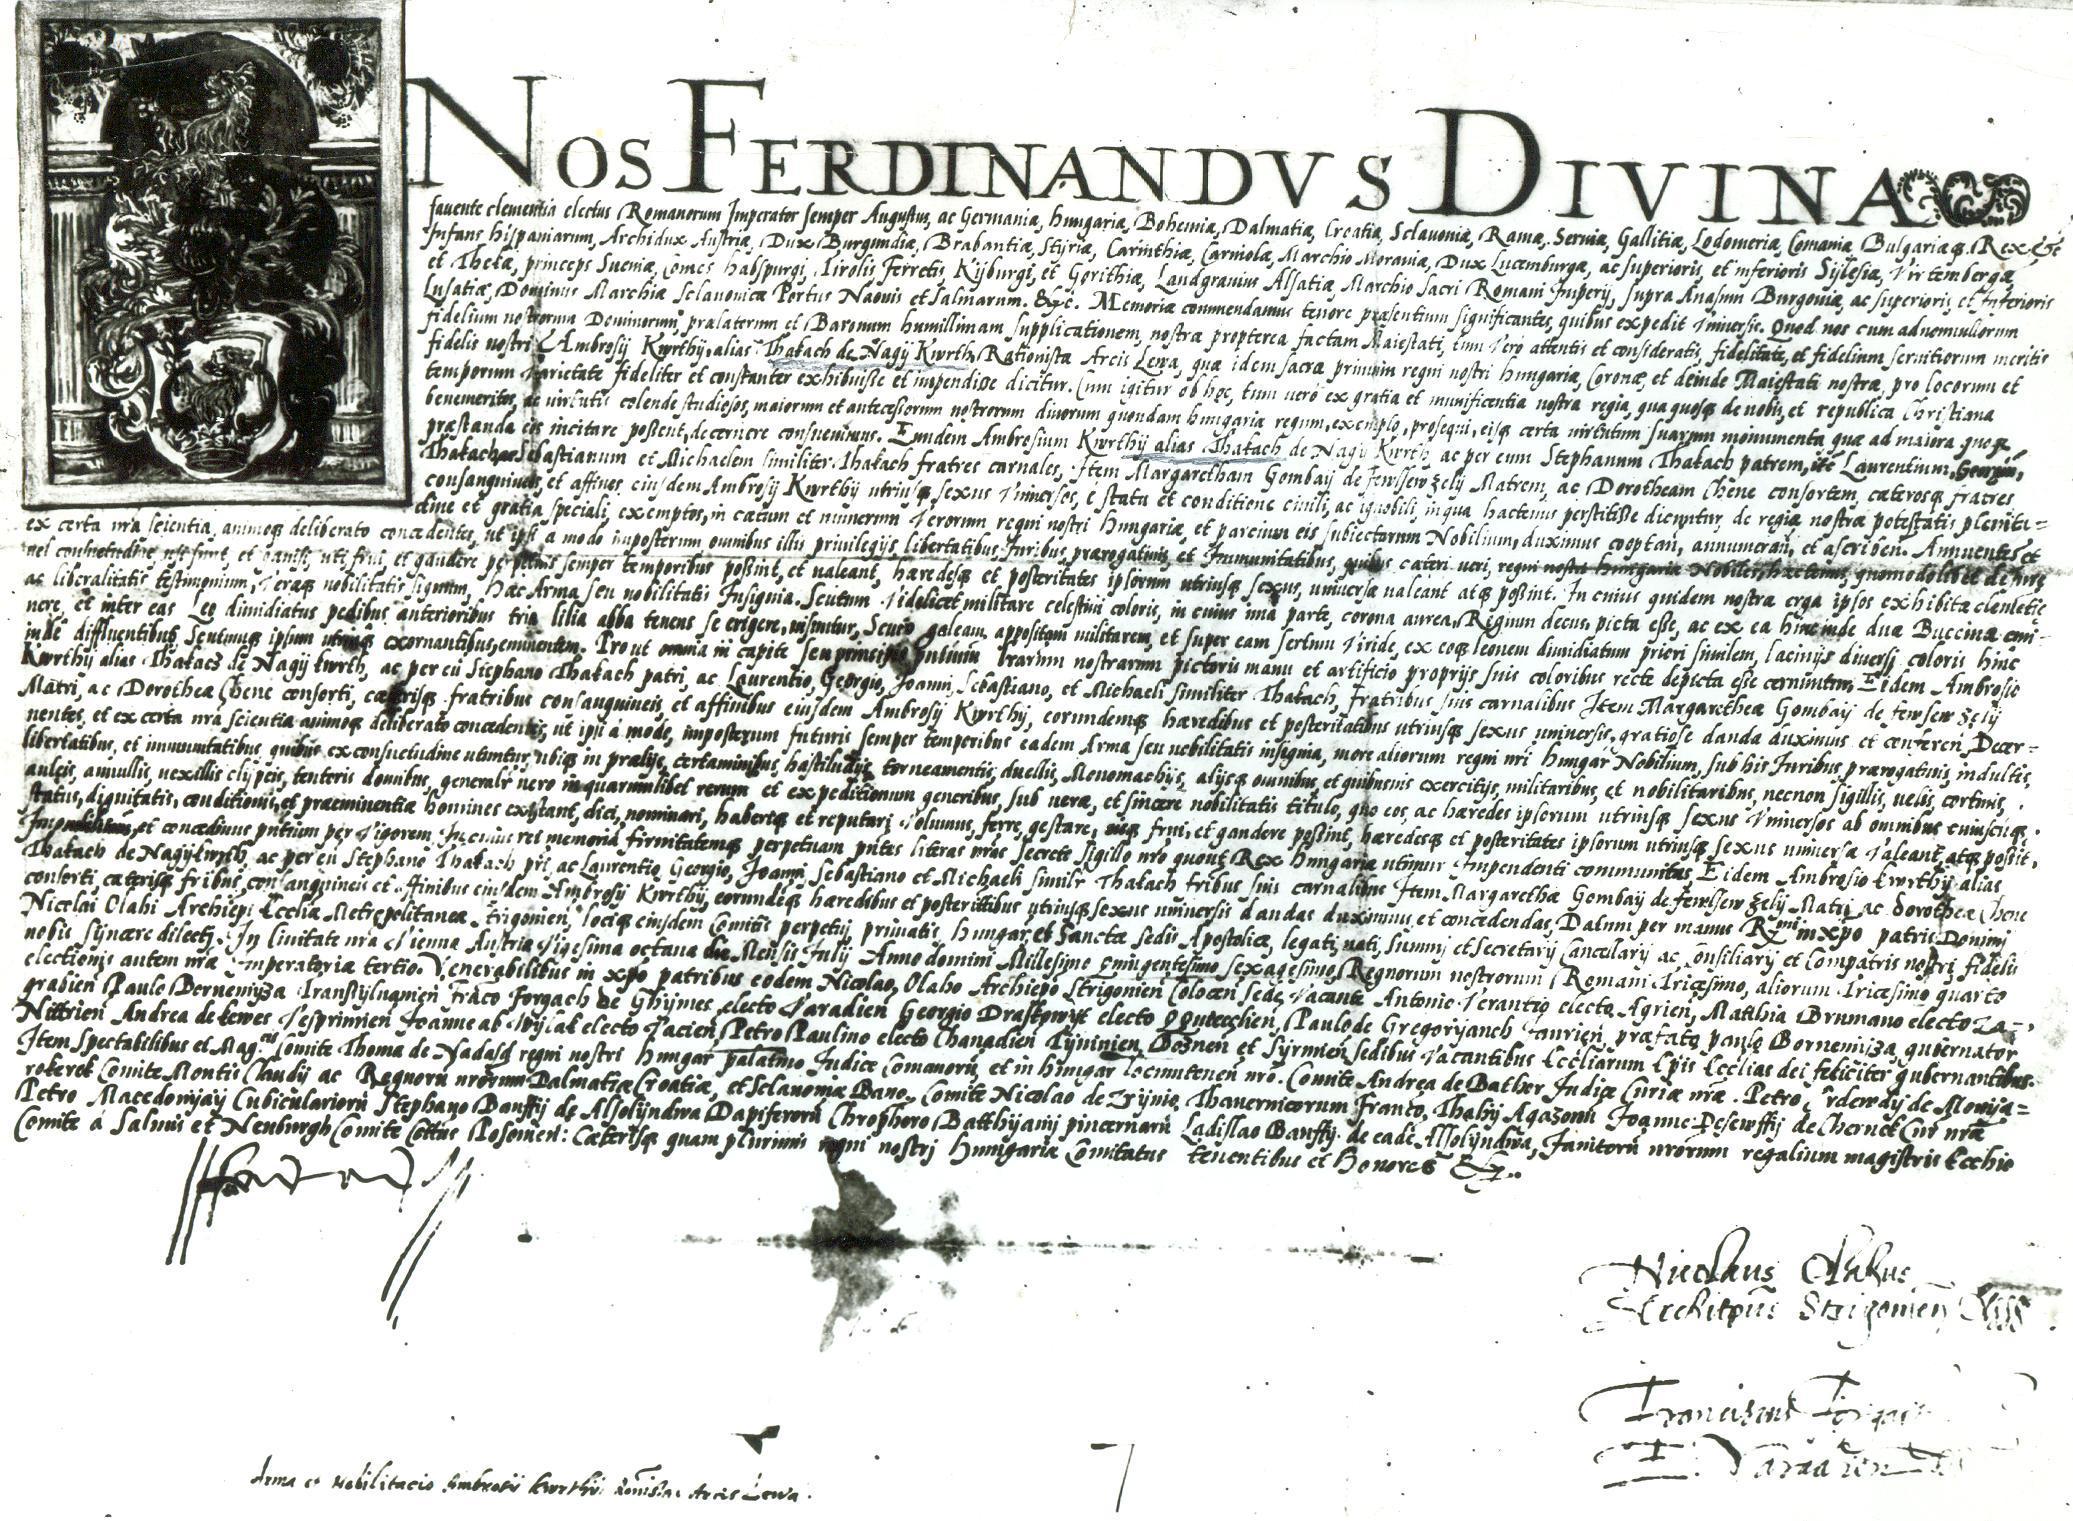 NOS FERDINANDVS DIVINA
favente clementia electus Romanorum Imperator semper Augustus, ac Germaniæ, Hungariæ, Bohemiæ, Dalmatiæ, Croatiæ, Sclavoniæ, Ramæ, Serviæ, Gallitiæ, Lodomeriæ, Comaniæ, Bulgariæq. Rex &c
Infans Hispaniarum, Archidux Austriæ, Dux Burgundiæ, Brabantiæ, Styriæ, Carinthiæ, Carniolæ, Marchio Moraviæ, Dux Lucemburgæ, ac superioris, et inferioris Sylesiæ, Virtembergæ
et Thekæ, princeps Sueviæ, Comes Habspurgi, Tirolis Ferretis, Kyburgi, et Goritiæ, Landgravius Alsatiæ Marchio sacri Romani Imperij, supra Anasum Burgoviæ, ac superioris, et Inferioris
Lusatiæ, Dominus Marchiæ Sclavonicæ Portus Naonis et Salinarum. &c. Memoriæ commendamus tenore præsentium significantes, quibus expedit Universis. Quod nos cum ad
fidelium nostrorum Dominorum prælatorum et Baronum humillimam supplicationem, nostræ propterea factam Maiestati, tum vero attentis et consideratis, fidelitate, et fidelium servitiorum meritis
fidelis nostri Ambrosij Kwrthij, alias Thakach de Nagij Kwrth, Rationistæ Arcis Lewa, quæ idem sacræ primum regni nostri Hungariæ, Coronæ, et deinde Maiestati nostræ, pro locorum et
temporum varietate fideliter et constanter exhibuisse et impendisse dicitur. Cum igitur ob hoc, tum vero ex gratia et munificentia nostra regia, qua quosq. de nobis, et republica Christiana
benemeritos, ac virtutis colendæ studiosos, maiorum et antecessorum nostrorum divorum quondam Hungariæ regum, exemplo, prosequi, eisq. certa virtutum suarum monumenta, quæ ad maiora quoq.
præstanda eos incitare possent, decernere consuevimus. Eundem Ambrosium Kwrthij alias Thakach de Nagij Kwrth, ac per eum Stephanum Thakach patrem, Laurentium, Georgiu,
Sebastianum et Michaelem similiter Thakach fratres carnales, Item Margaretham Gombay de Matrem, ac Dorotheam Chene consortem, cæterosq. fratres
consanguineos, et affines eiusdem Ambrosij Kwrthij utriusq. sexus Universos, e statu et conditione civili, ac ignobili, in qua hactenus perstitisse dicuntur, de regiæ nostræ potestatis plenitu=
dine et gratia speciali, exemptos, in cœtum et numerum verorum regni nostri Hungariæ, et partium eis subiectarum Nobilium, duximus cooptan, annumeran, et ascriben. Annuentes et
ex certa nra scientia, animoq. deliberato concedentes, ut ipsi a modo imposterum omnibus illis privilegijs, libertatibus, Iuribus, prærogativis, et Immunitatibus, quibus cæteri veri, regni nostri Hungariæ Nobiles, hactenus, quomodolibet de iure
vel consuetudine usi sunt, et gavisi, uti, frui, et gaudere perpetuis semper temporibus possint, et valeant, hæredesq. et posteritates ipsorum utriusq. sexus, universæ valeant atq. possint. In cuius quidem nostræ erga ipsos exhibitæ clementiæ
ac liberalitatis testimonium, veræq. nobilitatis signum, hæc Arma seu nobilitatis Insignia. Scutum videlicet militare celestini coloris, in cuius ima parte, corona aurea, Regium decus, picta esse, ac ex ea hincinde duæ Buccinæ emi=
nere, et inter eas Leo dimidiatus pedibus anterioribus tria lilia alba tenens se erigere, visuntur, Scuto galeam appositam militarem, et super eam sertum Viride, ex eoq. leonem dimidiatum priori similem, lacinijs diversi coloris hinc
inde diffluentibus, Scutumq. ipsum exornantibus, eminentem. Prout omnia in capite seu principio literarum nostrarum pictoris manu et artificio proprijs suis coloribus recte depicta esse cernuntur, Eidem Ambrosio
Kwrthij alias Thakach de Nagij Kwrth, ac per eu Stephano Thakach patri, ac Laurentio, Georgio, Joanni, Sebastiano, et Michaeli similiter Thakach, fratribus suis carnalibus Item Margarethæ Gombay de
Matri, ac Dorotheæ Chene consorti, cæterisq. fratribus consanguineis, et affinibus eiusdem Ambrosij Kwrthij, eorundemq. hæredibus et posteritatibus utriusq. sexus universis, gratiose danda duximus et conferen, Decer=
nentes, et ex certa nra scientia animoq. deliberato concedentes, ut ipsi a modo, imposterum futuris semper temporibus eadem Arma seu nobilitatis insignia, more aliorum regni nri Hungar Nobilium, sub his Iuribus prærogativis, indultis,
libertatibus, et immunitatibus, quibus ex consuetudine utuntur, ubiq. in prælijs, certaminibus, hastiludijs, torneamentis, duellis, Monomachijs, alijsq. omnibus, et quibusvis exercitijs, militaribus, et nobilitaribus, necnon sigillis, velis, cortinis,
auleis, annullis, vexillis, clypeis, tentorijs domibus, generalr vero in quarumlibet rerum et expeditionum generibus, sub veræ, et sinceræ nobilitatis titulo, quo eos, ac hæredes ipsorum utriusq. sexus Universos ab omnibus cuiuscuq.
status, dignitatis, conditionis, et præeminentiæ homines existant, dici, nominari, haberiq. et reputari, Volumus, ferre, gestare, frui, et gaudere possint, hæredesq. et posteritates ipsorum utriusq. sexus universæ Valeant, atq. possit,
et concedimus pntium per Vigorem. In cuius rei memoriã firmitatemq. perpetuam pntes literas nras Secreto Sigillo nro quo ut Rex Hungariæ utimur Impendenti communitas Eidem Ambrosio Kwrthij alias
Thakach de Nagykwrth, ac per eu Stephano Thakach pri, ac Laurentio, Georgio, Joanni, Sebastiano et Michaeli similr Thakach fribus suis carnalibus Item Margarethæ Gombay de Matri ac Dorotheæ Chene
consorti, cæterisq. fribus, consanguineis et affinibus eiusdem Ambrosij Kwrthij, eorundeq. hæredibus et posteritibus utriusq. sexus universis dandas duximus, et concedendas, Datum per manus Rmi in xpo patris Domini
Nicolai Olahi Archiepi Ecclæ Metropolitanæ Strigonien, lociq. eiusdem Comitis perpetui, primatis, Hungar, et Sanctæ sedis Apostolicæ, legati nati, Summi et Secretarij Cancelarij ac Consiliarij et Compatris nostri, fidelis
nobis syncere dilecti. In Civitate nra Vienna Austriæ Vigesima octava die Mensis Julij Anno domini Millesimo Quingentesimo sexagesimo, Regnorum nostrorum Romani Tricesimo, aliorum Tricesimo quarto
electionis autem nræ Imperatoriæ tertio. Venerabilibus in xpo patribus eodem Nicolao, Olaho Archiepo Strigonien Colocen sede, Vacante Antonio Verantio electo Agrien, Mathia Brumano electo Za=
grabien Paulo Bornemyza Transsylvanien Franco Forgach de Ghymes electo Varadien Georgio Draskowyt electo Quinqueecclien, Paulo de Gregoryanch Jaurien, præfato, paulo Bornemiza, gubernator
Nittrien Andrea de Kewes Vesprimien Joanne ab electo Vacien, Petro Paulino electo Chanadien Tyninien, Boznen et Syrmien sedibus Vacantibus Eccliarum Epis Ecclias dei feliciter gubernantibus.
Item Spectabilibus et Magcis Comite Thoma de Nadasd regni nostri Hungar palatino, Judice Comanoru, et in Hungar locumtenen nro. Comite Andrea de Bather Judice Curiæ nræ. Petro, Erdewdy de Monya=
rokerek Comite Montis Claudij ac Regnoru nrorum Dalmatiæ Croatiæ, et Sclavoniæ Bano, Comite Nicolao de Zrynio, Thavernicorum Franco, Thahy Agazonu Joanne Desewffy de Chernek Cur nræ
Petro Macedonyay Cubiculariorũ Stephano Banffy de Alsolyndwa Dapiferorũ Chrophoro Batthijanij pincernarũ Ladislao Banffy de eadẽ Alsolyndwa, Janitorũ nrorum regalium magistris Ecchio
Comite a Salmis et Neuburgh Comite Cottus Posonien: Cæterisq. quam plurimis regni nostri Hungariæ Comitatus tenentibus et Honores &c.
Nicolaus Olahus
Archiepus Strigonien
Franciscus
Arma et Nobilitacio Ambrosii Kwrthii Arcis Lewa.